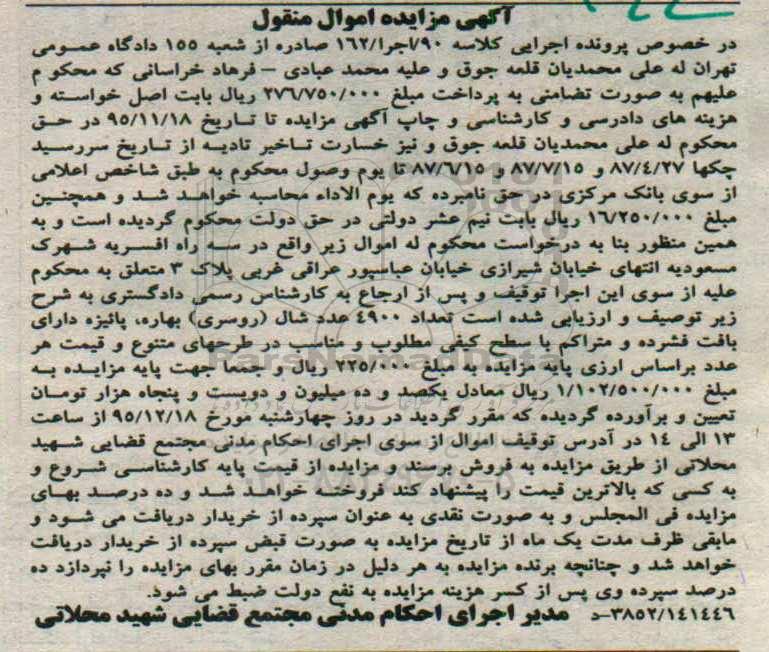 آگهی مزایده اموال منقول
در خصوص پرونده اجرایی کلاسه ۹۰/اجرا/۱۶۲ صادره از شعبه ۱۵۵ دادگاه عمومی
تهران له علی محمدیان قلعه جوق و علیه محمد عبادی – فرهاد خراسانی که محکوم
علیهم به صورت تضامنی به پرداخت مبلغ ۲۷۶/۷۵۰/۰۰۰ ریال بابت اصل خواسته و
هزینه های دادرسی و کارشناسی و چاپ آگهی مزایده تا تاریخ ۹۵/۱۱/۱۸ در حق
محکوم له علی محمدیان قلعه جوق و نیز خسارت تاخیر تادیه از تاریخ سررسید
چکها ۸۷/۴/۲۷ و ۸۷/۷/۱۵ و ۸۷/۶/۱۵ تا یوم وصول محکوم به طبق شاخص اعلامی
از سوی بانک مرکزی در حق نامبرده که یوم الاداء محاسبه خواهد شد و همچنین
مبلغ ۱۶/۲۵۰/۰۰۰ ریال بابت نیم عشر دولتی در حق دولت محکوم گردیده است و به
همین منظور بنا به درخواست محکوم له اموال زیر واقع در سه راه افسریه شهرک
مسعودیه انتهای خیابان شیرازی خیابان عباسپور عراقی غربی پلاک ۳ متعلق به محکوم
علیه از سوی این اجرا توقیف و پس از ارجاع به کارشناس رسمی دادگستری به شرح
زیر توصیف و ارزیابی شده است تعداد ۴۹۰۰ عدد شال (روسری) بهاره، پائیزه دارای
بافت فشرده و متراکم با سطح کیفی مطلوب و مناسب در طرحهای متنوع و قیمت هر
عدد براساس ارزی پایه مزایده به مبلغ ۲۲۵/۰۰۰ ریال و جمعا جهت پایه مزایده به
مبلغ ۱/۱۰۲/۵۰۰/۰۰۰ ریال معادل یکصد و ده میلیون و دویست و پنجاه هزار تومان
تعیین و برآورده گردیده که مقرر گردید در روز چهارشنبه مورخ ۹۵/۱۲/۱۸ از ساعت
۱۳ الی ۱۴ در آدرس توقیف اموال از سوی اجرای احکام مدنی مجتمع قضایی شهید
محلاتی از طریق مزایده به فروش برسند و مزایده از قیمت پایه کارشناسی شروع و
به کسی که بالاترین قیمت را پیشنهاد کند فروخته خواهد شد و ده درصد بهای
مزایده فی المجلس و به صورت نقدی به عنوان سپرده از خریدار دریافت می شود و
مابقی ظرف مدت یک ماه از تاریخ مزایده به صورت قبض سپرده از خریدار دریافت
خواهد شد و چنانچه برنده مزایده به هر دلیل در زمان مقرر بهای مزایده را نپردازد ده
درصد سپرده وی پس از کسر هزینه مزایده به نفع دولت ضبط می شود.
۳۸۵۲/۱۴۱۴۴۶-د مدیر اجرای احکام مدنی مجتمع قضایی شهید محلاتی
ParsNamadData